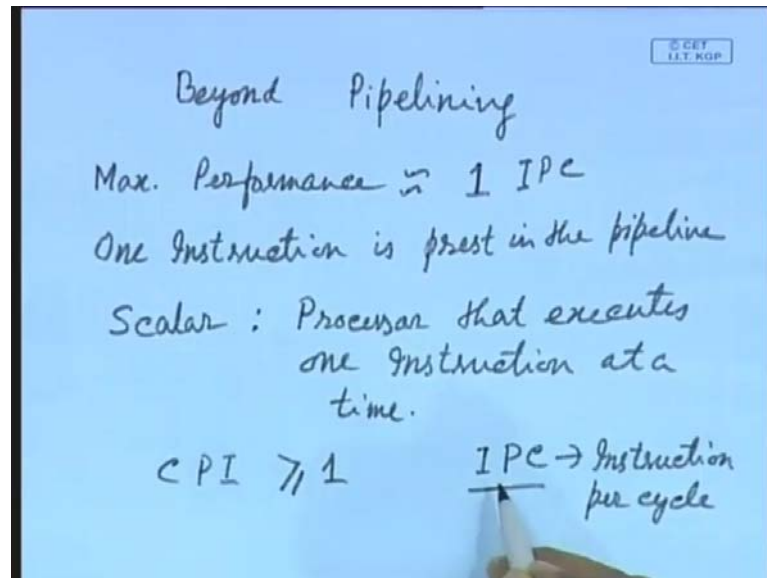 © CET
I.I.T. KGP
Beyond Pipelining
Max. Performance ≈ 1 IPC
One Instruction is prest in the pipeline
Scalar : Processor that executes
one Instruction at a
time.
CPI ⩾ 1 IPC → Instruction
per cycle